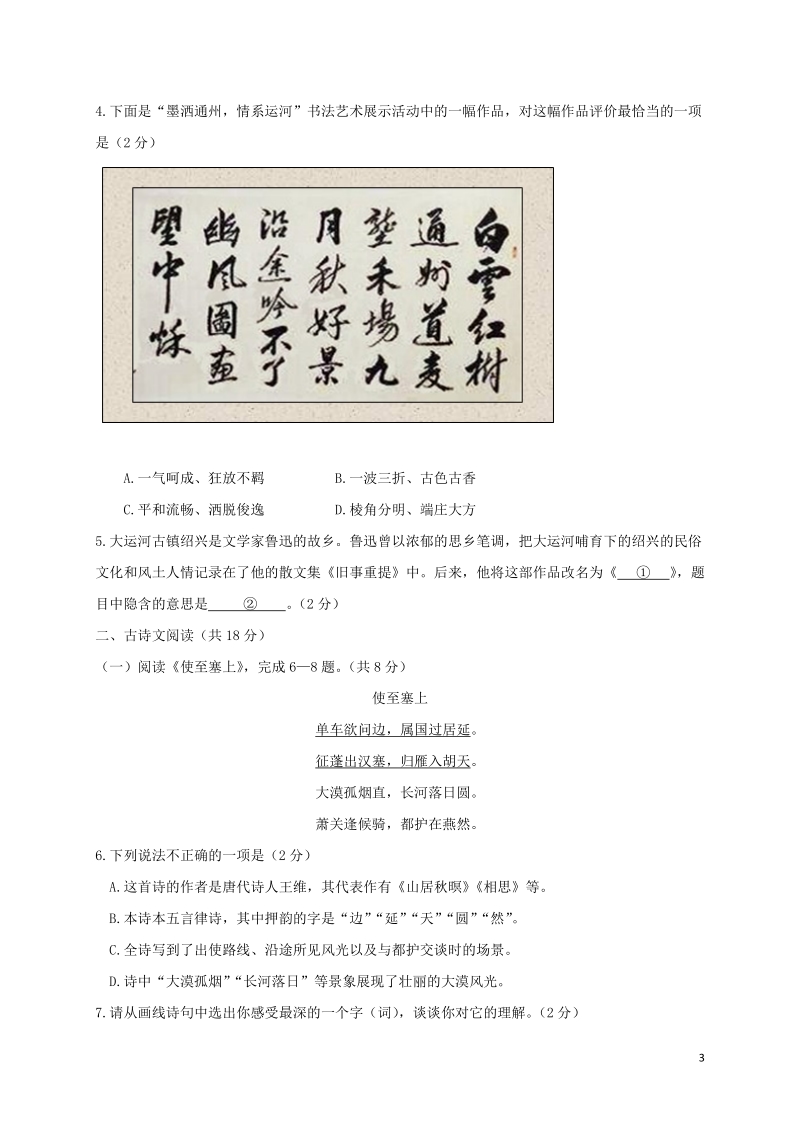 4.下面是“墨洒通州，情系运河”书法艺术展示活动中的一幅作品，对这幅作品评价最恰当的一项
是（2 分）
白雲红樹
通州道麦
壟禾場九
月秋好景
沿途吟不了
豳风圖画
望中
A.一气呵成、狂放不羁 B.一波三折、古色古香
C.平和流畅、洒脱俊逸 D.棱角分明、端庄大方
5.大运河古镇绍兴是文学家鲁迅的故乡。鲁迅曾以浓郁的思乡笔调，把大运河哺育下的绍兴的民俗
文化和风土人情记录在了他的散文集《旧事重提》中。后来，他将这部作品改名为《 ① 》，题
目中隐含的意思是 ② 。（2 分）
二、古诗文阅读（共 18 分）
（一）阅读《使至塞上》，完成 6—8 题。（共 8 分）
使至塞上
单车欲问边，属国过居延。
征蓬出汉塞，归雁入胡天。
大漠孤烟直，长河落日圆。
萧关逢候骑，都护在燕然。
6.下列说法不正确的一项是（2 分）
A.这首诗的作者是唐代诗人王维，其代表作有《山居秋暝》《相思》等。
B.本诗本五言律诗，其中押韵的字是“边”“延”“天”“圆”“然”。
C.全诗写到了出使路线、沿途所见风光以及与都护交谈时的场景。
D.诗中“大漠孤烟”“长河落日”等景象展现了壮丽的大漠风光。
7.请从画线诗句中选出你感受最深的一个字（词），谈谈你对它的理解。（2 分）
3